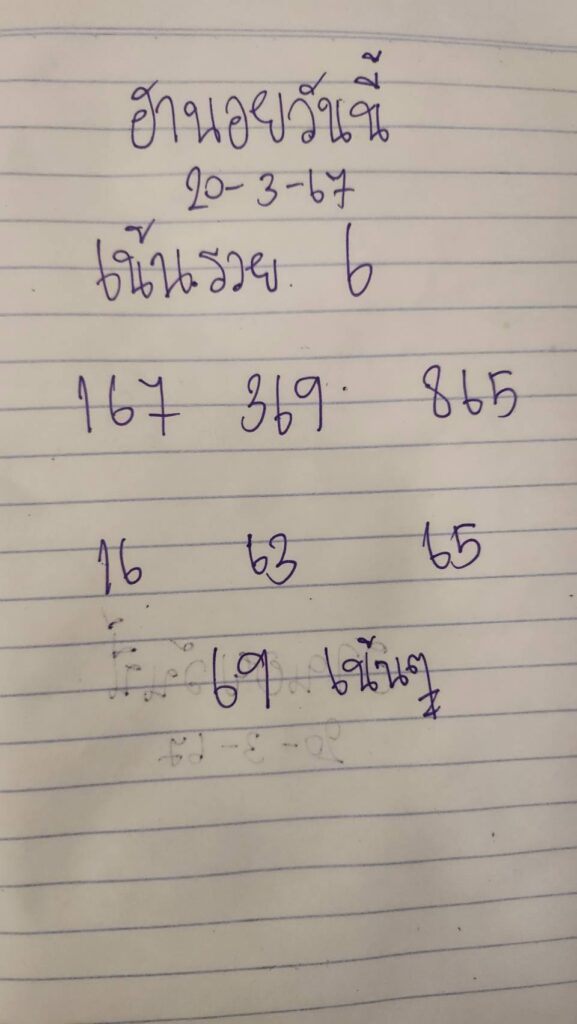 ฮานอยวันนี้
20-3-67
เน้นรวย 6
167 369 865
16 63 65
69 เน้นๆ